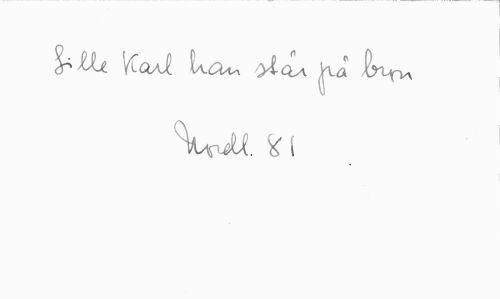 Lille Karl han står på bron
Nordl. 81